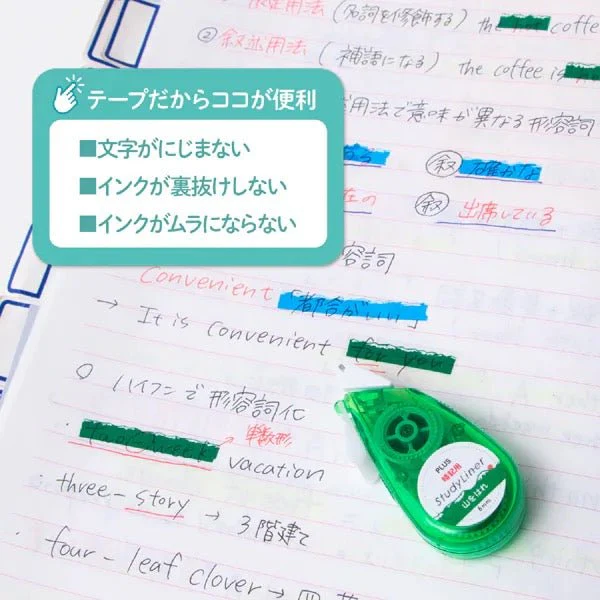 限定用法(名詞を修飾する) the hot coffe
②叙述用法(補語になる) the coffee is
テープだからココが便利
■文字がにじまない
■インクが裏抜けしない
■インクがムラにならない
用法で意味が異なる形容詞
叙
在の 叙 出席している
容詞
Convenient 「都合がいい」
→ It is convenient for you
○ ハイフンで形容詞化
単数形
vacation
three-story → 3階建て
four-leaf clover →
PLUS
暗記用
StudyLiner
山をはれ
6mm